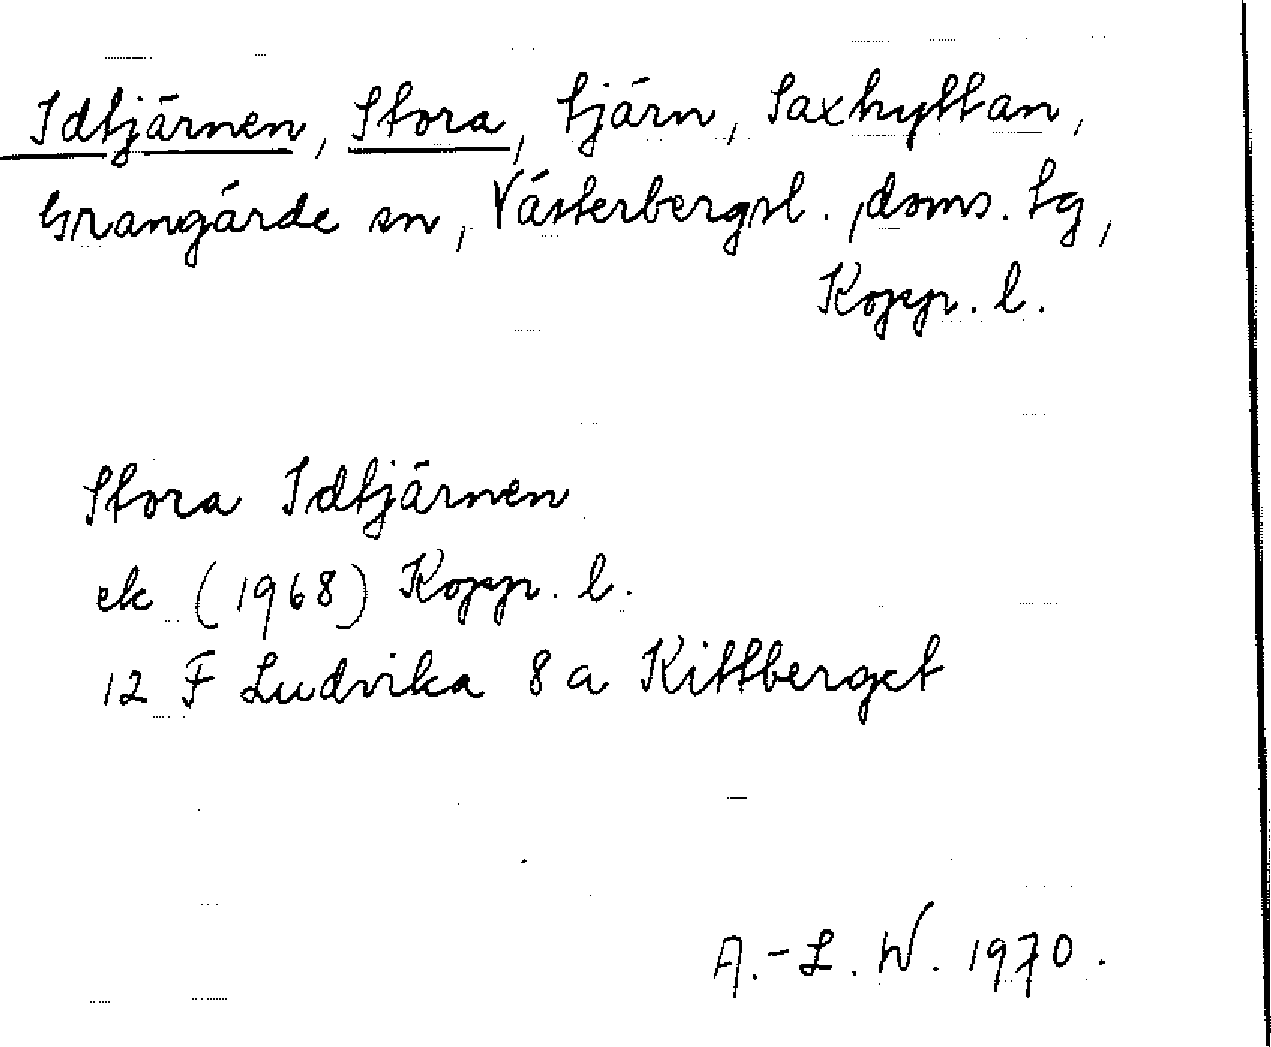 Idtjärnen, Stora, tjärn, Saxhyttan,
Grangärde sn, Västerbergsl., doms. tg,
Kopp. l.
Stora Idtjärnen
ek (1968) Kopp. l.
12 F Ludvika 8 a Kittberget
A.-L. W. 1970.